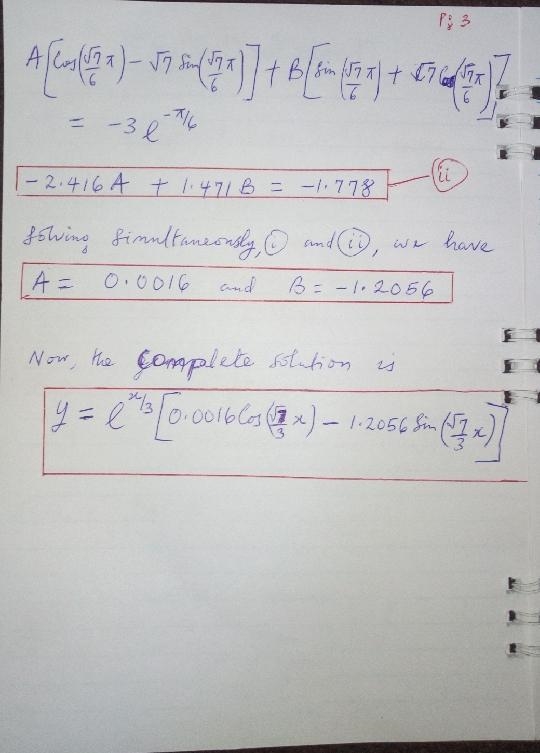 Pg 3
A[Cos(√7/6 π) - √7 Sin(√7π/6)] + B[Sin(√7π/6) + √7 Cos(√7π/6)]
= -3e^(-π/6)
-2.416A + 1.471B = -1.778 (ii)
Solving Simultaneously, (i) and (ii), we have
A = 0.0016 and B = -1.2056
Now, the Complete solution is
y = e^(x/3) [0.0016Cos(√7/3 x) - 1.2056 Sin(√7/3 x)]